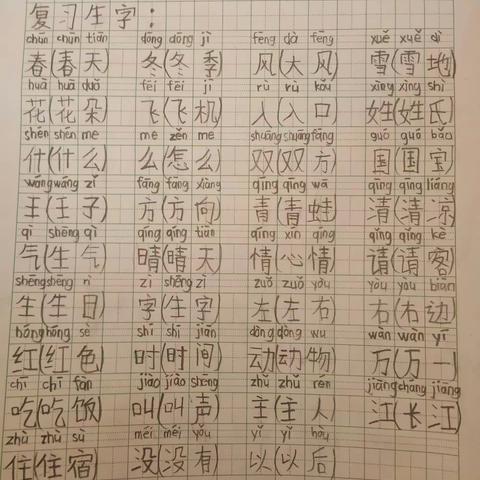 复习生字：
chūn chūn tiān dōng dōng jì fēng dà fēng xuě xuě dì
春(春天) 冬(冬季) 风(大风) 雪(雪地)
huā huā duǒ fēi fēi jī rù rù kǒu xìng xìng shì
花(花朵) 飞(飞机) 入(入口) 姓(姓氏)
shén shén me me zěn me shuāng shuāng fāng guó guó bǎo
什(什么) 么(怎么) 双(双方) 国(国宝)
wáng wáng zǐ fāng fāng xiàng qīng qīng wā qīng qīng liáng
王(王子) 方(方向) 青(青蛙) 清(清凉)
qì shēng qì qíng qíng tiān qíng xīn qíng qǐng qǐng kè
气(生气) 晴(晴天) 情(心情) 请(请客)
shēng shēng rì zì shēng zì zuǒ zuǒ yòu yòu yòu biān
生(生日) 字(生字) 左(左右) 右(右边)
hóng hóng sè shí shí jiān dòng dòng wu wàn wàn yī
红(红色) 时(时间) 动(动物) 万(万一)
chī chī fàn jiào jiào shēng zhǔ zhǔ rén jiāng cháng jiāng
吃(吃饭) 叫(叫声) 主(主人) 江(长江)
zhù zhù sù méi méi yǒu yǐ yǐ hòu
住(住宿) 没(没有) 以(以后)